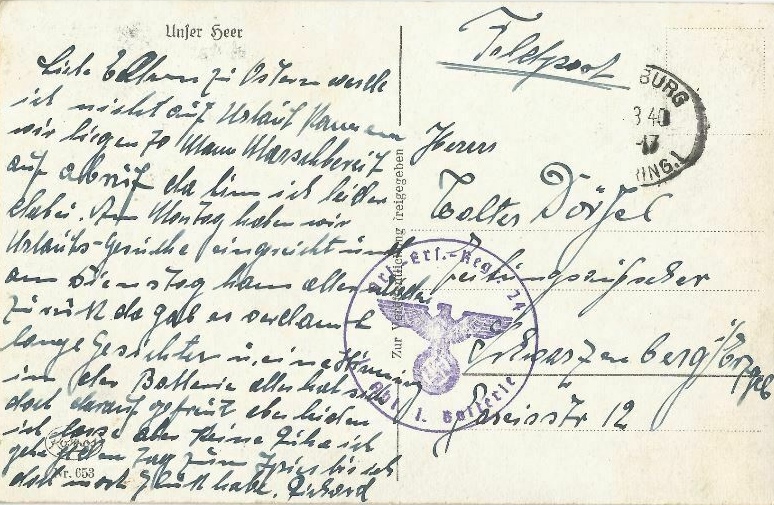 Unser Heer
Liebe Eltern zu Ostern werde
ich nicht auf Urlaub kommen
wir liegen 70 Mann Marschbereit
auf abruf da bin ich leider
dabei. Am Montag haben wir
Urlaubs-Gesuche eingereicht und
am Dienstag kam alles wieder
zurück da gab es verdammt
lange Gesichter u. eine Stimmung
in der Batterie alles hat sich
doch darauf gefreut aber leider
ich lasse aber keine Ruhe ich
gehe jeden Tag zum Spies bis ich
doch noch Glück habe. Richard
Nr. 653
Zur Veröffentlichung freigegeben
Feldpost
BURG
3 40
-17
RING.1
Herrn
Dörfel
Schwarzenberg/Erzgeb
str 12
Art.-Ers.-Regt. 24
Abt. 1. Batterie